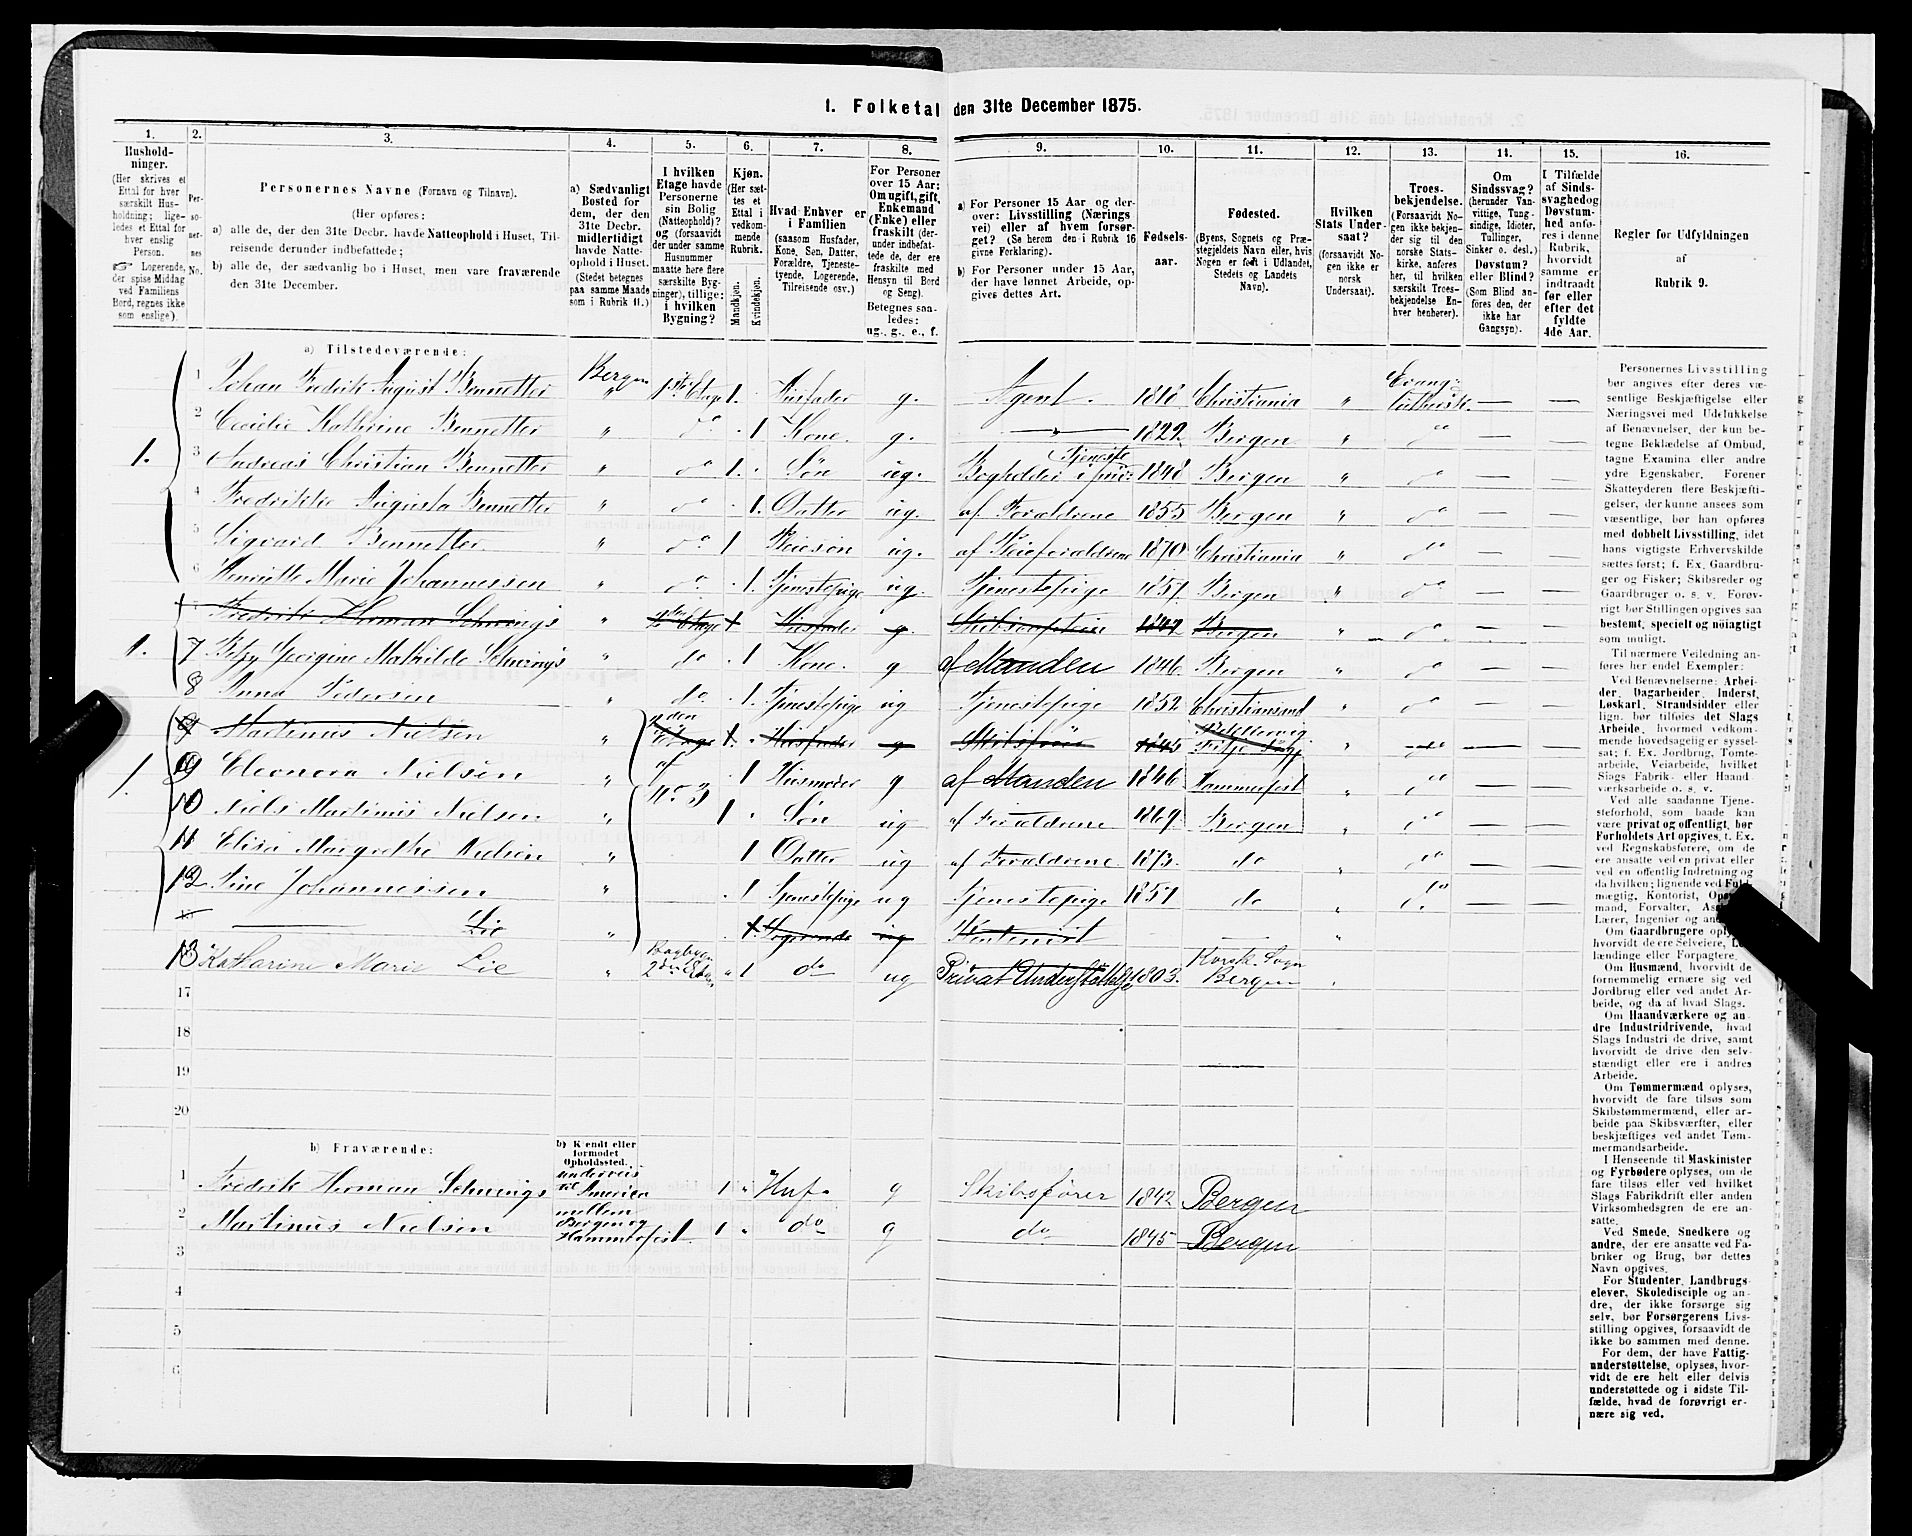 1. Folketal den 31te December 1875.
1. 2. 3. 4. 5. 6. 7. 8. 9. 10. 11. 12. 13. 14. 15. 16.
Hushold-
ninger.
(Her skrives et
Ettal for hver
særskilt Hus-
holdning; lige-
ledes et Ettal for
hver enslig
Person.
☞ Logerende,
der spise Middag
ved Familiens
Bord, regnes ikke
som enslige).
Per-
so-
ner-
nes
No.
Personernes Navne (Fornavn og Tilnavn).
(Her opføres:
a) alle de, der den 31te Decbr. havde Natteophold i Huset, Til-
reisende derunder indbefattede;
b) alle de, der sædvanlig bo i Huset, men vare fraværende
den 31te December.
a) Sædvanligt
Bosted for
dem, der den
31te Decbr.
midlertidigt
havde Natte-
ophold i Huset.
(Stedet betegnes
paa samme Maade
som i Rubrik 11.)
I hvilken
Etage havde
Personerne
sin Bolig
(Natteophold)?
og (forsaavidt
der under samme
Husnummer
maatte høre flere
særskilte Byg-
ninger), tillige:
i hvilken
Bygning?
Kjøn.
(Her sæt-
tes et
Ettal i
vedkom-
mende
Rubrik.
Mandkjøn.
Kvindekjøn.
Hvad Enhver er
i Familien
(saasom Husfader,
Kone, Søn, Datter,
Forældre, Tjeneste-
tyende, Logerende,
Tilreisende osv.)
For Personer
over 15 Aar:
Om ugift, gift,
Enkemand
(Enke) eller
fraskilt (der-
under indbefat-
tede de, der ere
fraskilte med
Hensyn til Bord
og Seng).
Betegnes saa-
ledes:
ug., g., e., f.
a) For Personer 15 Aar og der-
over: Livsstilling (Nærings
vei) eller af hvem forsør-
get? (Se herom den i Rubrik 16
givne Forklaring).
b) For Personer under 15 Aar,
der have lønnet Arbeide, op-
gives dettes Art.
Fødsels-
aar.
Fødested.
(Byens, Sognets og Præ-
stegjeldets Navn eller, hvis
Nogen er født i Udlandet,
Stedets og Landets
Navn).
Hvilken
Stats Under-
saat?
(forsaavidt No-
gen ikke er
norsk
Undersaat).
Troes-
bekjendelse.
(Forsaavidt No-
gen ikke bekjen-
der sig til den
norske Stats-
kirke, anføres
her, til hvilken
særskilt Troes-
bekjendelse En-
hver henhører).
Om
Sindssvag?
(herunder Van-
vittige, Tung-
sindige, Idioter,
Tullinger,
Sinker o. desl.)
Døvstum?
eller Blind?
(Som Blind an-
føres den, der
ikke har
Gangsyn).
I Tilfælde
af Sinds-
svaghed og
Døvstum-
hed anfø-
res i denne
Rubrik,
hvorvidt
samme er
indtraadt
før eller
efter det
fyldte
4de Aar.
Regler for Udfyldningen
af
Rubrik 9.
a) Tilstedeværende:
1 Johan Fredrik August Bennetter Bergen 1ste Etage 1. Husfader g. Agent. 1818 Christiania " Evang: Luthersk — —
2 Cecilie Kathrine Bennetter " do 1 Kone. g. — " — 1822 Bergen " do — —
1. 3 Andreas Christian Bennetter " do 1. Søn ug. Bogholder i priv: Tjeneste 1848 Bergen " do — —
4 Fredrikke Augusta Bennetter " do 1. Datter ug. af Forældrene 1855 Bergen " do — —
5 Sigvard Bennetter " do 1 Pleiesøn ug. af Pleieforældrene 1870 Christiania " do — —
6 Henriette Marie Johannessen " do 1. Tjenestepige ug. Tjenestepige 1857 Bergen " do — —
Fredrik Herman Schwings " 2den Etage 1 Husfader g. Skibscaptein 1842 Bergen " do
1. 7 Betzy Georgine Mathilde Schwings " do 1 Kone. g af Manden 1846 Bergen " do — —
8 Anna Pedersen " do 1. Tjenestepige ug Tjenestepige 1852 Christiansund " do — —
9 Martinus Nielsen " 2den Etage 1. Husfader g Skibsfører 1845 " do — —
1. 9 Eleonora Nielsen " af No 3 1 Husmoder g af Manden 1846 Hammerfest " do — —
10 Niels Martinus Nielsen " 1 Søn ug af Forældrene 1869 Bergen " do — —
11 Elisa Margrethe Nielsen " 1 Datter ug af Forældrene 1873 do " do — —
12 Sine Johannessen " 1 Tjenestepige ug Tjenestepige 1851 do " do — —
— Lie " 1. Logerende ug —
13 Katharine Marie Lie " Bagbygn. 2den Etage " 1 do ug Privat Understøttelse 1803. Korsk. Sogn Bergen
17
18
19
20
b) Fraværende:
b) Kjendt eller
formodet
Opholdssted.
1 Fredrik Herman Schwings underveis til America 1 " Husf. g Skibsfører 1842 Bergen
2 Martinus Nielsen mellem Bergen og Hammerfest 1 1 " do g do 1845 Bergen
3
4
5
6
Personernes Livsstilling
bør angives efter deres væ-
sentlige Beskjæftigelse eller
Næringsvei med Udelukkelse
af Benævnelser, der kun be-
tegne Beklædelse af Ombud,
tagne Examina eller andre
ydre Egenskaber. Forener
Skatteyderen flere Beskjæfti-
gelser, der kunne ansees som
væsentlige, bør han opføres
med dobbelt Livsstilling, idet
hans vigtigste Erhvervskilde
sættes først; f. Ex. Gaardbru-
ger og Fisker; Skibsreder og
Gaardbruger o. s. v. Forøv-
rigt bør Stillingen opgives saa
bestemt, specielt og nøiagtigt
som muligt.
Til nærmere Veiledning an-
føres her endel Exempler:
Ved Benævnelserne: Arbei-
der, Dagarbeider, Inderst,
Løskarl, Strandsidder eller
lign. bør tilføies det Slags
Arbeide, hvormed vedkom-
mende hovedsagelig er syssel-
sat; f. Ex. Jordbrug, Tomte-
arbeide, Veiarbeide, hvilket
Slags Fabrik- eller Haand-
værksarbeide o. s. v.
Ved alle saadanne Tjene-
steforhold, som baade kan
være privat og offentligt, bør
Forholdets Art opgives, t. Ex.
ved Regnskabsførere, om de
ere ansatte ved en privat eller
ved en offentlig Indretning og
da hvilken; lignende ved Fuld-
mægtig, Kontorist,
mand, Forvalter,
Lærer, Ingeniør og
Om Gaardbrugere oply-
hvorvidt de ere Selveiere,
lændinge eller Forpagtere.
Om Husmænd, hvorvidt de
fornemmelig ernære sig ved
Jordbrug eller ved andet Ar-
beide, og da af hvad Slags.
Om Haandværkere og an-
dre Industridrivende, hvad
Slags Industri de drive, samt
hvorvidt de drive den selv-
stændigt eller ere i andres
Arbeide.
Om Tømmermænd oplyses,
hvorvidt de fare tilsøs som
Skibstømmermænd, eller ar-
beide paa Skibsværfter, eller
beskjæftiges ved andet Tøm-
mermandsarbeide.
I Henseende til Maskinister
og Fyrbødere oplyses, om de
fare tilsøs eller ved hvilket
Slags Fabrikdrift eller anden
Virksomhedsgren de ere an-
satte.
Ved Smede, Snedkere og
andre, der ere ansatte ved Fa-
briker og Brug, bør dettes
Navn opgives.
For Studenter, Landbrugs-
elever, Skoledisciple og an-
dre, der ikke forsørge sig
selv, bør Forsørgerens Livs-
stilling opgives, forsaavidt de
ikke bo sammen med denne.
For dem, der have Fattig-
understøttelse, oplyses, hvor-
vidt de ere helt eller delvis
understøttede og i sidste Til-
fælde, hvad de forøvrigt er-
nære sig ved.